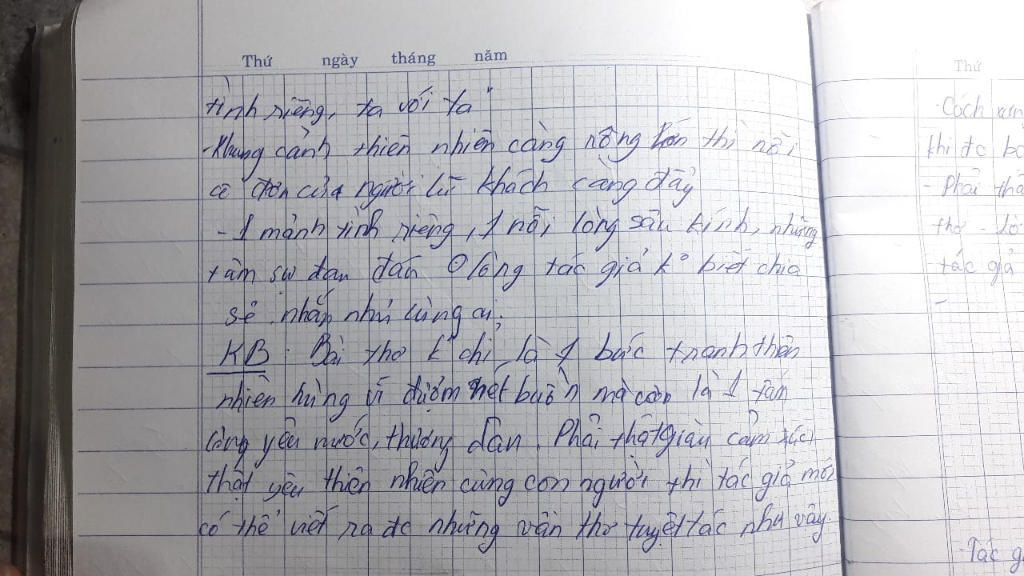 Thứ ngày tháng năm
tình riêng, ta với ta"
- Khung cảnh thiên nhiên càng rộng lớn thì nỗi
cô đơn của người lữ khách càng đầy
- 1 mảnh tình riêng, 1 nỗi lòng sâu kính, những
tâm sự đau đáu lòng tác giả k° biết chia
sẻ nhắn nhủ cùng ai;
KB: Bài thơ k° chỉ là 1 bức tranh thiên
nhiên hùng vĩ đượm nét buồn mà còn là 1 tấn
lòng yêu nước, thương dân. Phải thật giàu cảm xúc,
thật yêu thiên nhiên cùng con người thì tác giả mới
có thể viết ra đc những vần thơ tuyệt tác như vậy.
Thứ
- Cách
khi đc
- Phải
thơ -
- tác giả
-
- Tác